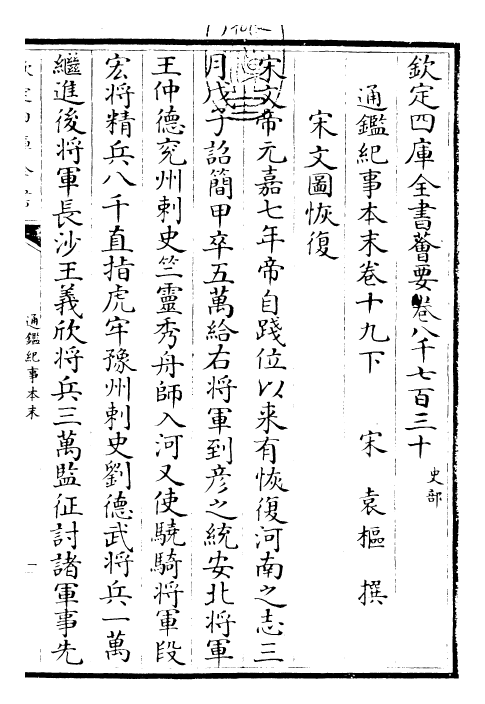 欽定四庫全書薈要卷八千七百三十 史部
通鑑紀事本末卷十九下 宋 袁樞 撰
宋文圖恢復
宋文帝元嘉七年帝自踐位以來有恢復河南之志三
月戊子詔簡甲卒五萬給右將軍到彦之統安北將軍
王仲德兖州刺史竺靈秀舟師入河又使驍騎將軍段
宏將精兵八千直指虎牢豫州刺史劉德武將兵一萬
繼進後將軍長沙王義欣將兵三萬監征討諸軍事先
通鑑紀事本末
一